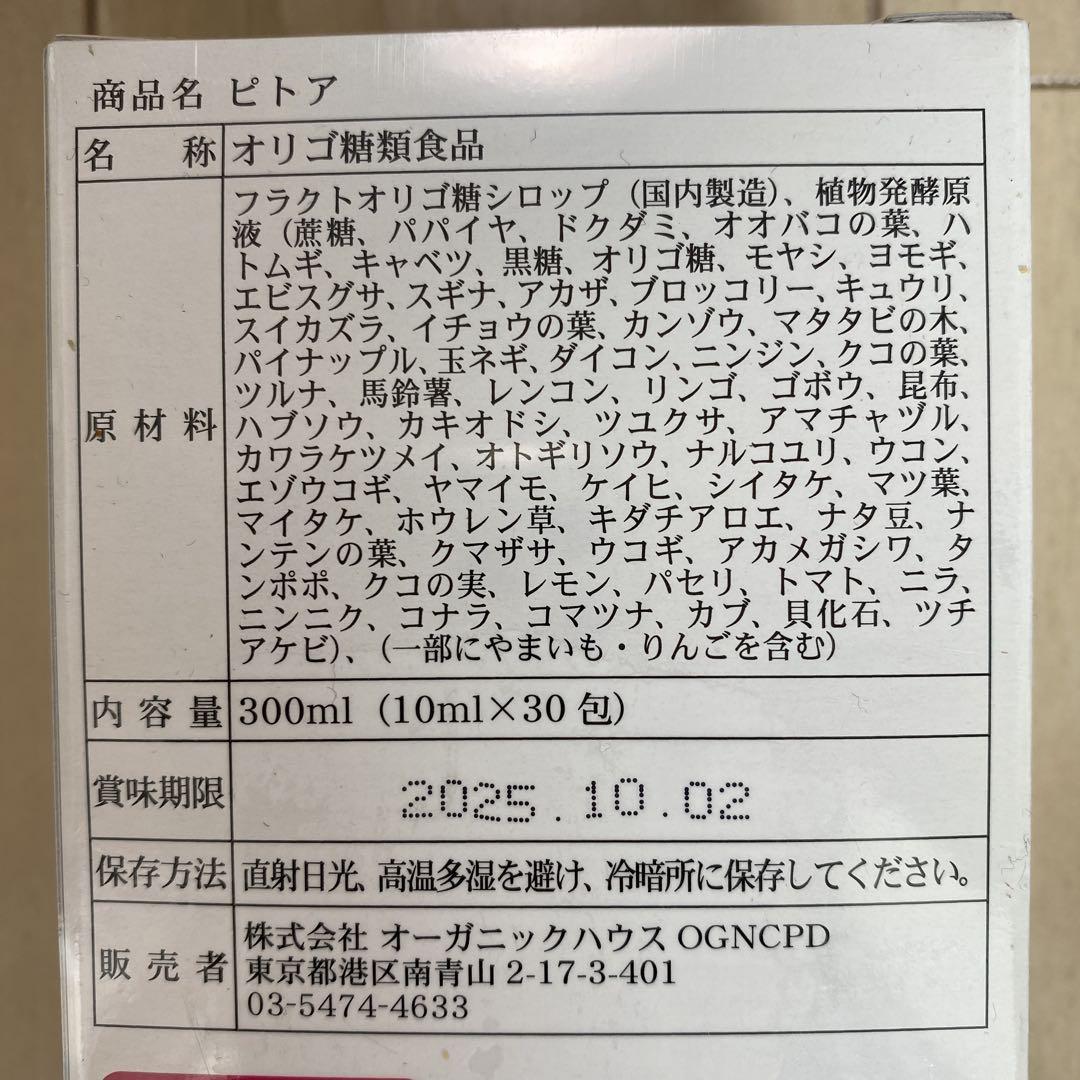 商品名 ピトア
名 称 オリゴ糖類食品
原材料
フラクトオリゴ糖シロップ（国内製造）、植物発酵原
液（蔗糖、パパイヤ、ドクダミ、オオバコの葉、ハ
トムギ、キャベツ、黒糖、オリゴ糖、モヤシ、ヨモギ、
エビスグサ、スギナ、アカザ、ブロッコリー、キュウリ、
スイカズラ、イチョウの葉、カンゾウ、マタタビの木、
パイナップル、玉ネギ、ダイコン、ニンジン、クコの葉、
ツルナ、馬鈴薯、レンコン、リンゴ、ゴボウ、昆布、
ハブソウ、カキオドシ、ツユクサ、アマチャヅル、
カワラケツメイ、オトギリソウ、ナルコユリ、ウコン、
エゾウコギ、ヤマイモ、ケイヒ、シイタケ、マツ葉、
マイタケ、ホウレン草、キダチアロエ、ナタ豆、ナ
ンテンの葉、クマザサ、ウコギ、アカメガシワ、タ
ンポポ、クコの実、レモン、パセリ、トマト、ニラ、
ニンニク、コナラ、コマツナ、カブ、貝化石、ツチ
アケビ）、（一部にやまいも・りんごを含む）
内容量 300ml（10ml×30包）
賞味期限 2025.10.02
保存方法 直射日光、高温多湿を避け、冷暗所に保存してください。
販売者
株式会社 オーガニックハウス OGNCPD
東京都港区南青山 2-17-3-401
03-5474-4633